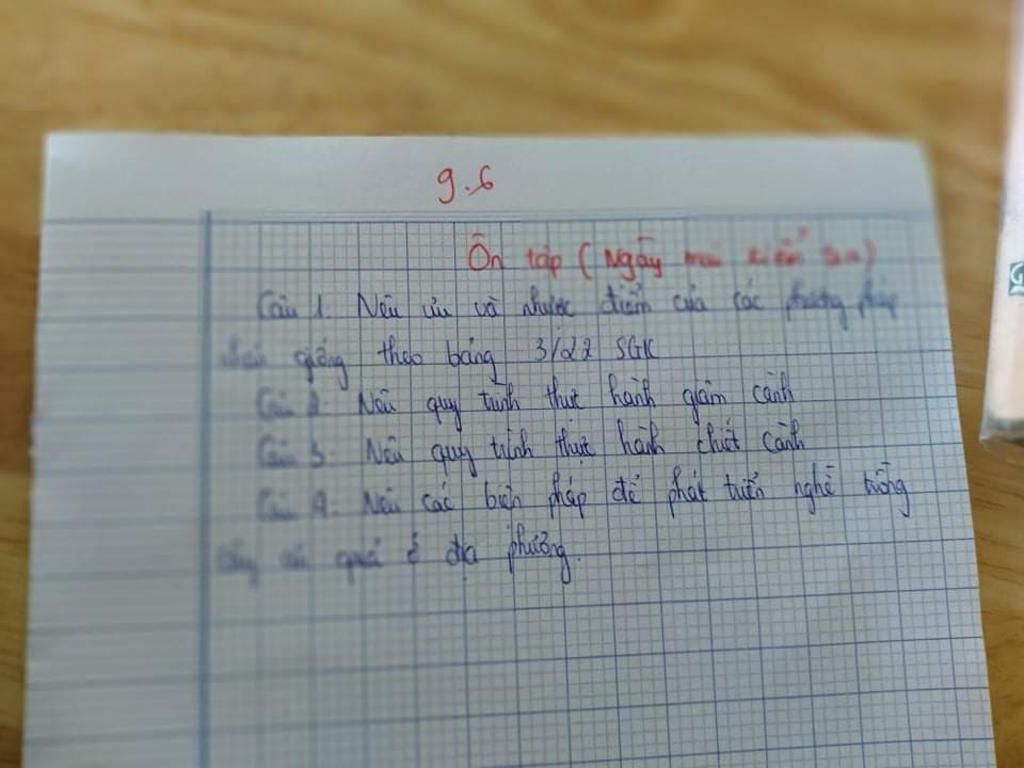 9.6
Ôn tập (Ngày mai kiểm tra)
Câu 1. Nêu ưu và nhược điểm của các phương pháp
giống theo bảng 3/22 SGK
Câu 2. Nêu quy trình thực hành giâm cành
Câu 3. Nêu quy trình thực hành chiết cành
Câu 4. Nêu các biện pháp để phát triển nghề trồng
cây ăn quả ở địa phương.